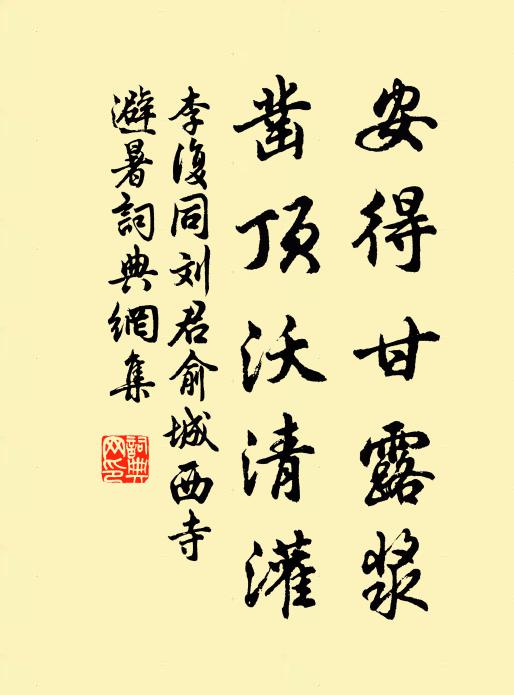 安得甘露浆
凿顶沃清灌
李復同刘君俞城西寺
避暑詞典網集
詞典网印